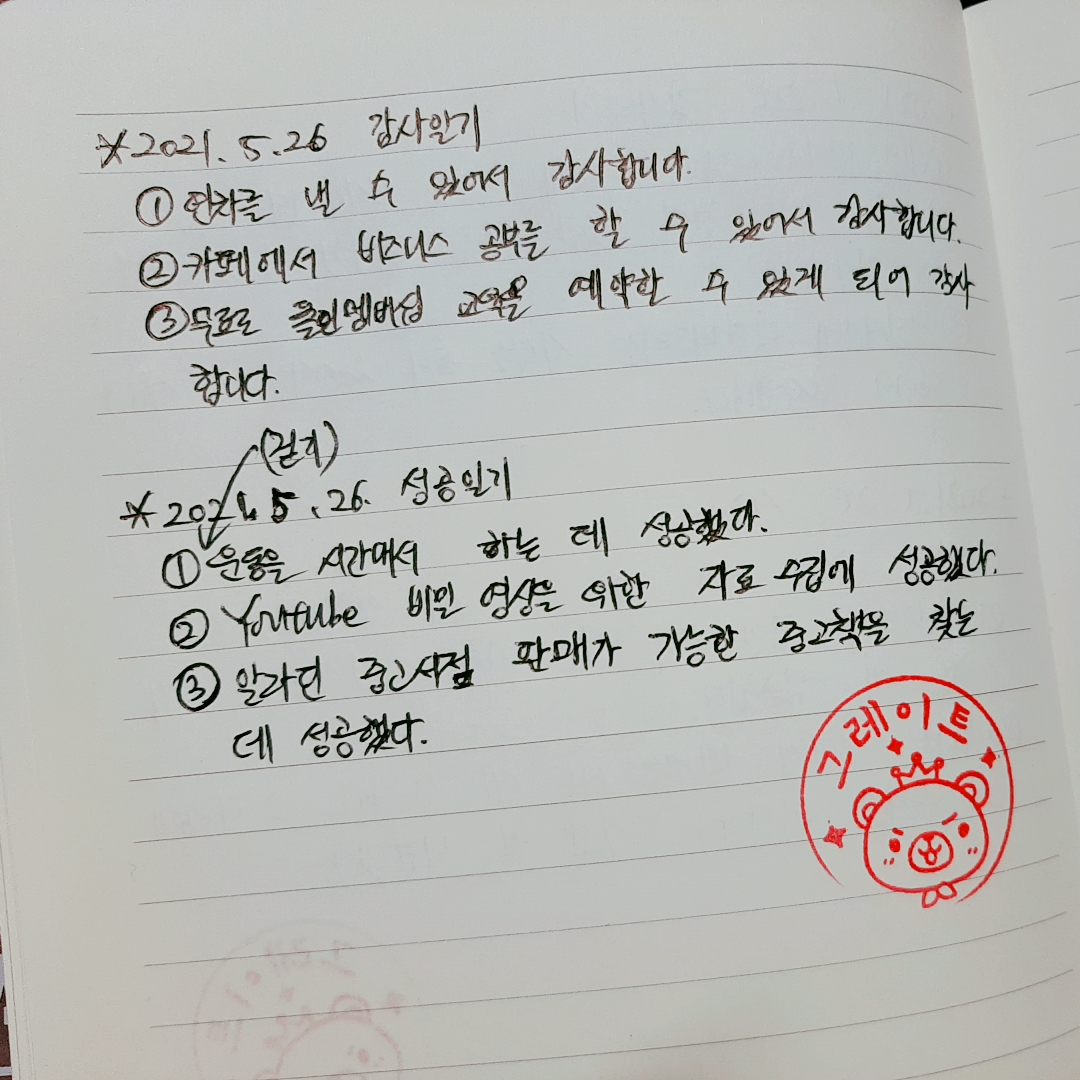 ※2021.5.26 감사일기
① 연차를 낼 수 있어서 감사합니다.
② 카페에서 비즈니스 공부를 할 수 있어서 감사합니다.
③ 무료로 클인멤버십 교육을 예약할 수 있게 되어 감사
합니다.
(걷기)
※2021.5.26. 성공일기
① 운동을 시간내서 하는 데 성공했다.
② Youtube 비밀 영상을 위한 자료 수집에 성공했다.
③ 알라딘 중고서점 판매가 가능한 중고책을 찾는
데 성공했다.
그레이트